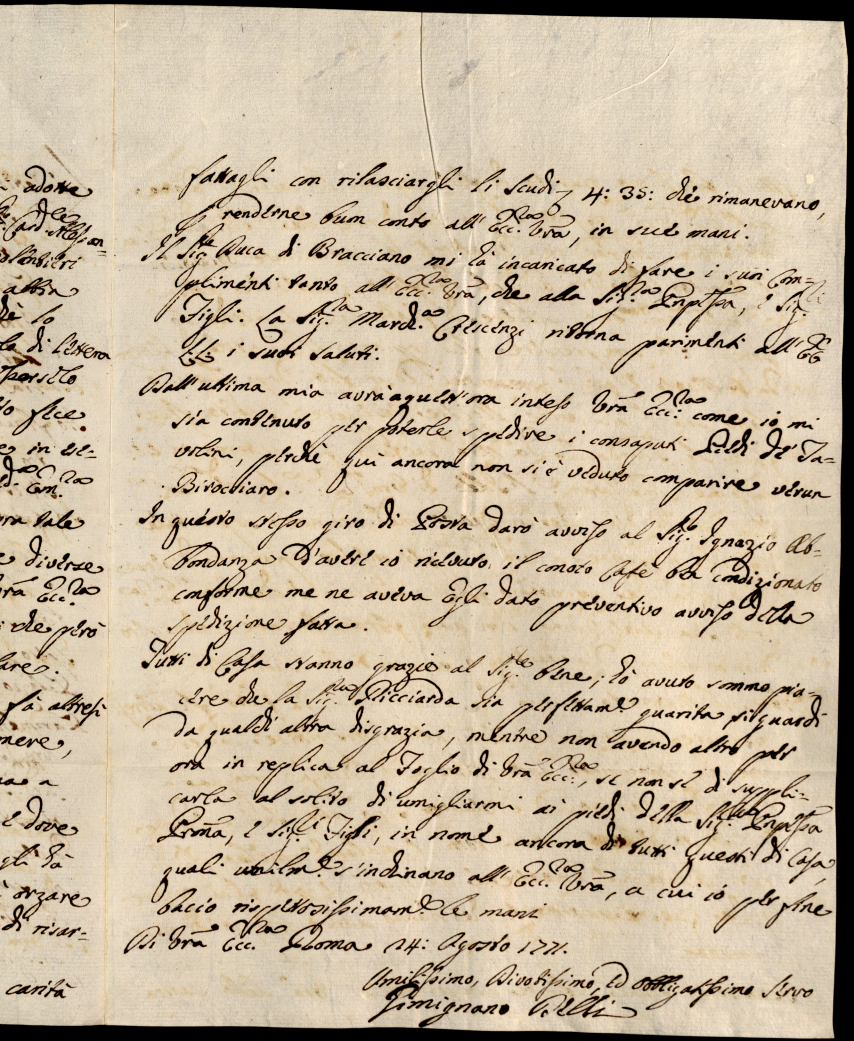 adotta
Card.le Alessan-
volentieri
altra
lo
lo di lettera
fece
in
Em.za
tale
diverse
Vrã Ecc.za
che però
fà altresì
a
e dove
egli hà
orzare
di risar-
carità
fattagli con rilasciargli li Scudi 4: 35: che rimanevano,
renderne buon conto all' Ecc.za Vrã, in sue mani.
Il Sig.re Duca di Bracciano mi hà incaricato di fare i suoi Com-
plimenti tanto all' Ecc.za Vrã, che alla Sig.ra Pnpessa, e Sig.li
Figli. La Sig.ra March.a Crescenzi ritorna parimenti all' EE
LL i suoi saluti.
Dall'ultima mia avrà a quest'ora inteso Vrã Ecc.za come io mi
sia contenuto per poterle spedire i consaputi Piedi de' Ta-
volini, perchè quì ancora non si è veduto comparire verun
Birocciaro.
In questo stesso giro di Posta darò avviso al Sig.re Ignazio Ab-
bondanza d'avere io ricevuto il Cafè ben condizionato
conforme me ne aveva Egli dato preventivo avviso della
spedizione fatta.
Tutti di Casa stanno grazie al Sig.re bene; hò avuto sommo pia-
cere che la Sig.ra Ricciarda sia perfettam.e guarita, si guardi
da qualche altra disgrazia, mentre non avendo altro per
ora in replica al Foglio di Vrã Ecc.za, se non se di suppli-
carla al solito di umigliarmi ai piedi della Sig.ra Pnpessa
Prõna, e Sig.i Figli, in nome ancora di tutti questi di Casa,
quali umilm.e s'inchinano all' Ecc.za Vrã, a cui io per fine
bacio rispettosissimam.e le mani
Di Vrã Ecc.za Roma 24: Agosto 1771.
Umilissimo, Divotissimo, ed obbligatissimo Servo
Gimignano Pelli